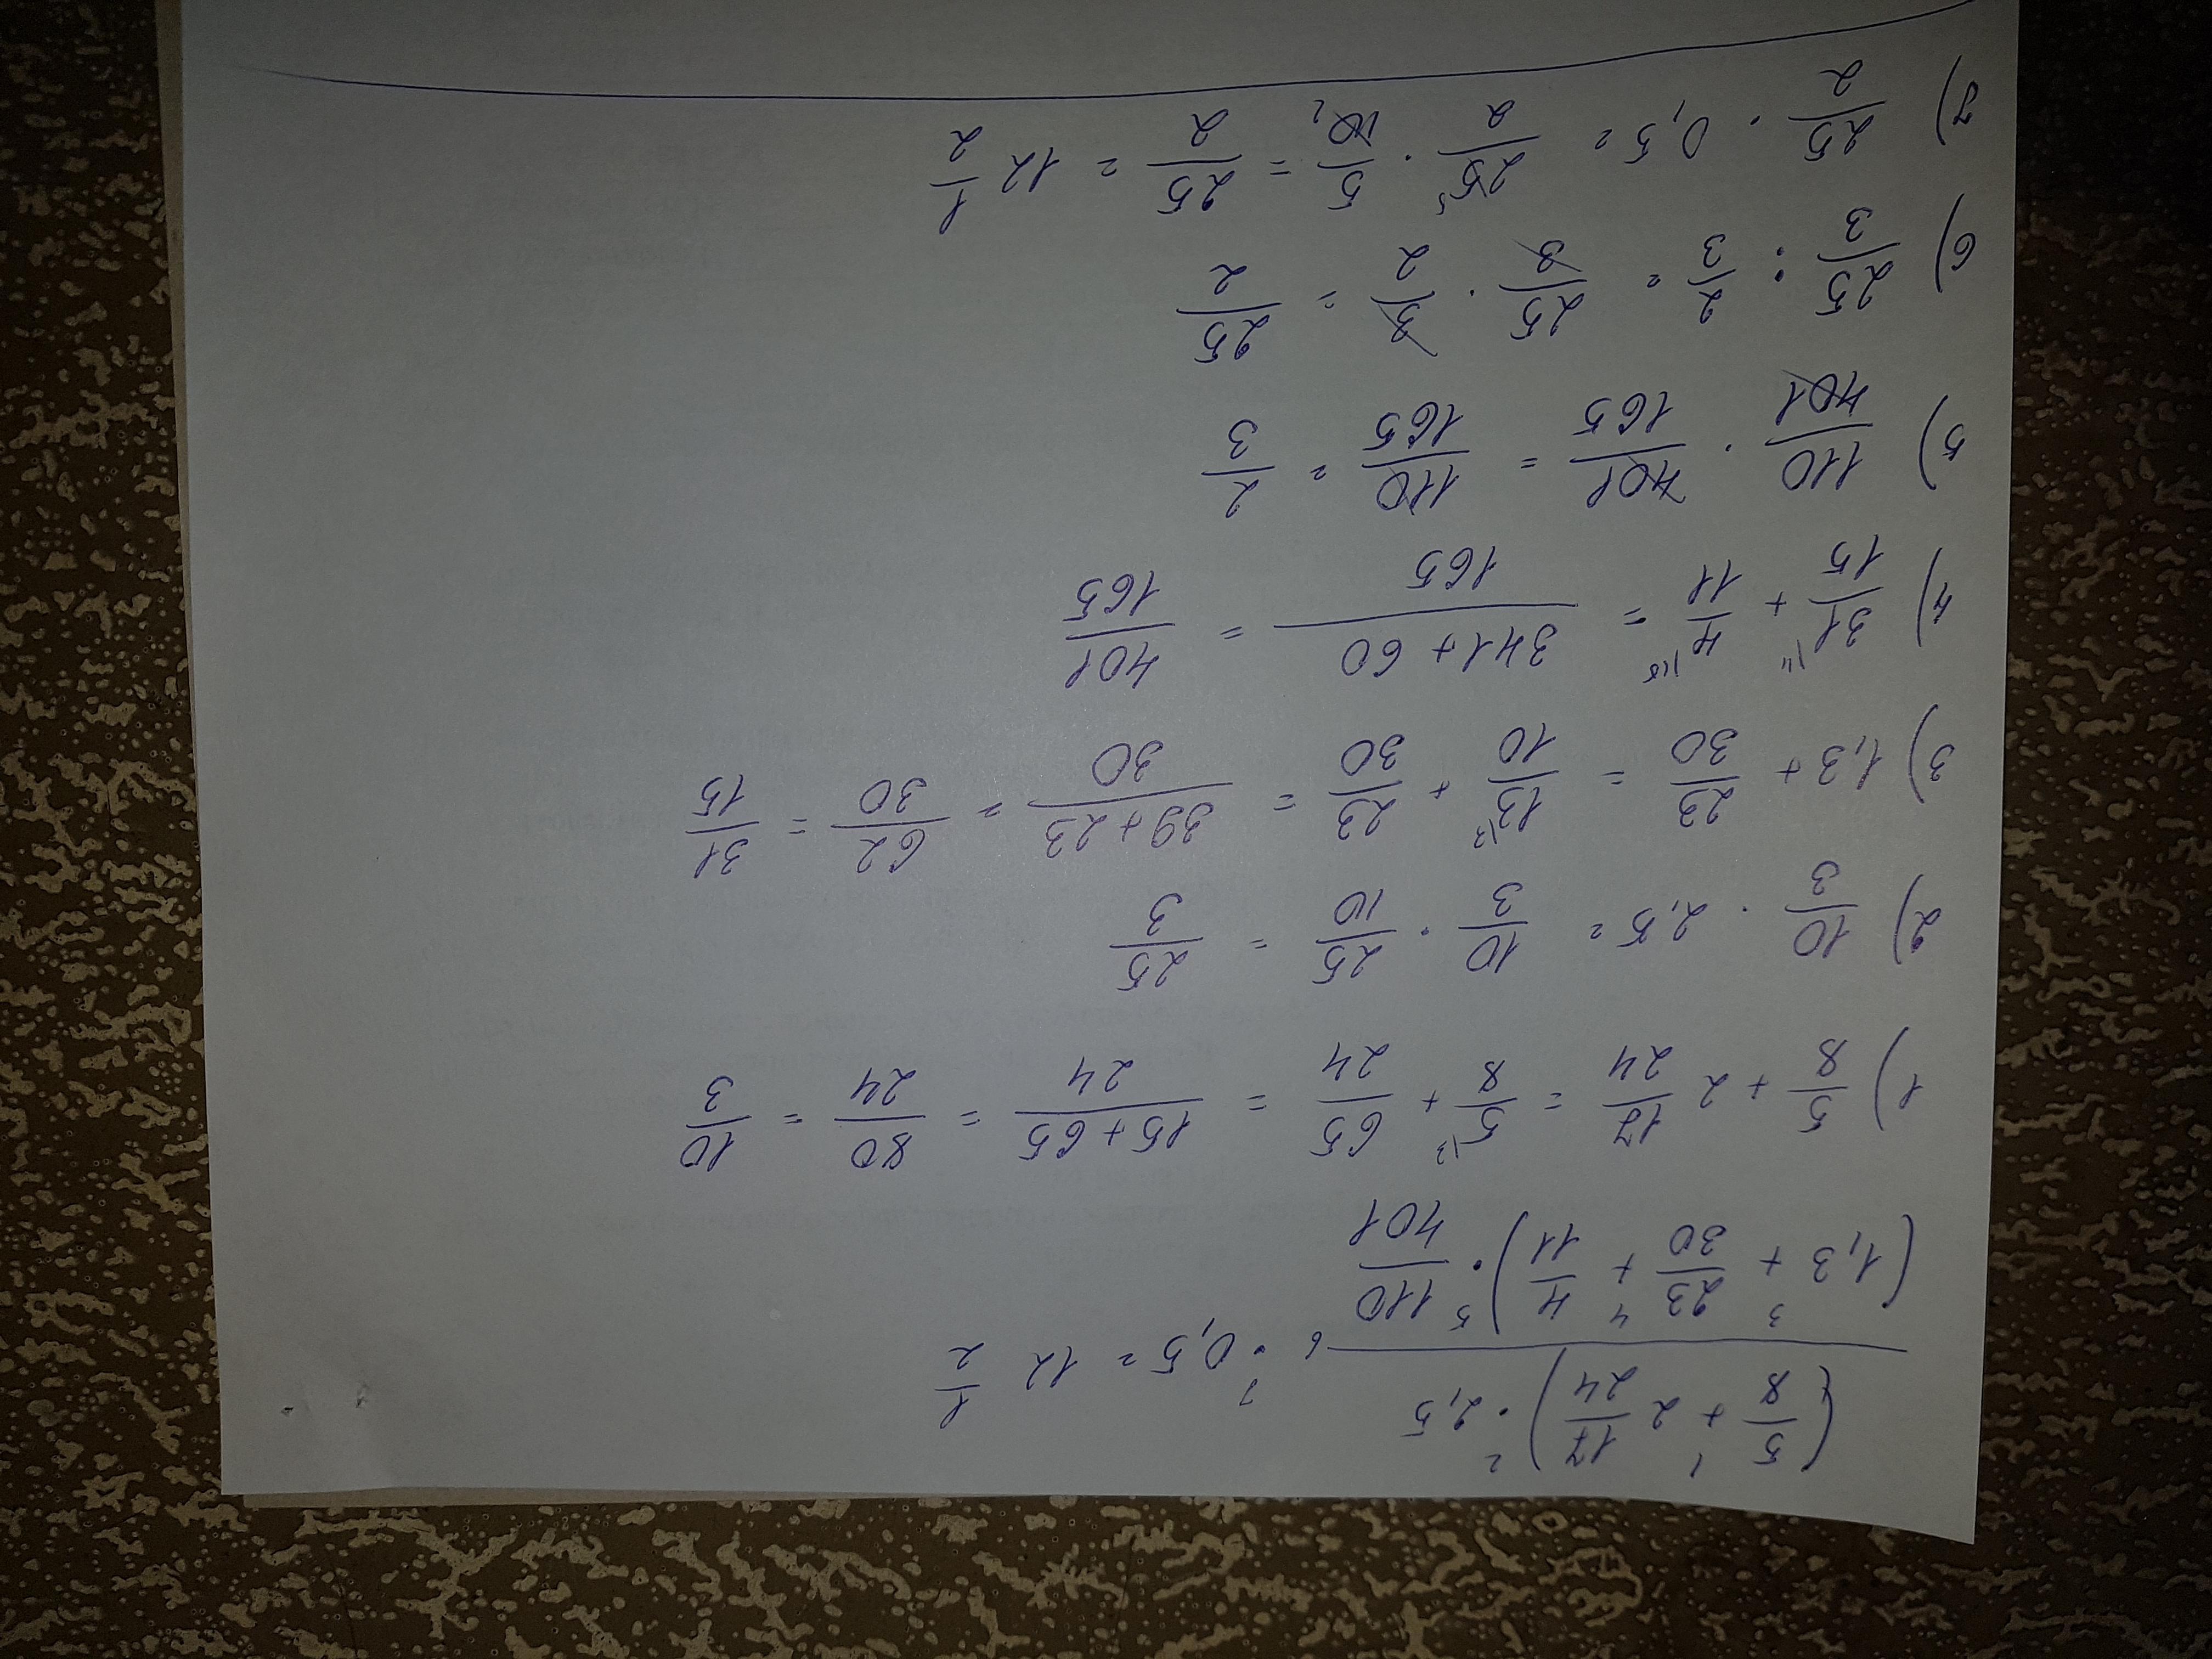 (5/8 + 2 17/24) · 2,5
――――――――――――――― · 0,5 = 12 1/2
(1,3 + 23/30 + 4/11) · 110/401
1) 5/8 + 2 17/24 = 5/8 + 65/24 = 15+65/24 = 80/24 = 10/3
2) 10/3 · 2,5 = 10/3 · 25/10 = 25/3
3) 1,3 + 23/30 = 13/10 + 23/30 = 39+23/30 = 62/30 = 31/15
4) 31/15 + 4/11 = 341+60/165 = 401/165
5) 110/401 · 401/165 = 110/165 = 2/3
6) 25/3 : 2/3 = 25/3 · 3/2 = 25/2
7) 25/2 · 0,5 = 25/2 · 5/10 = 25/2 = 12 1/2